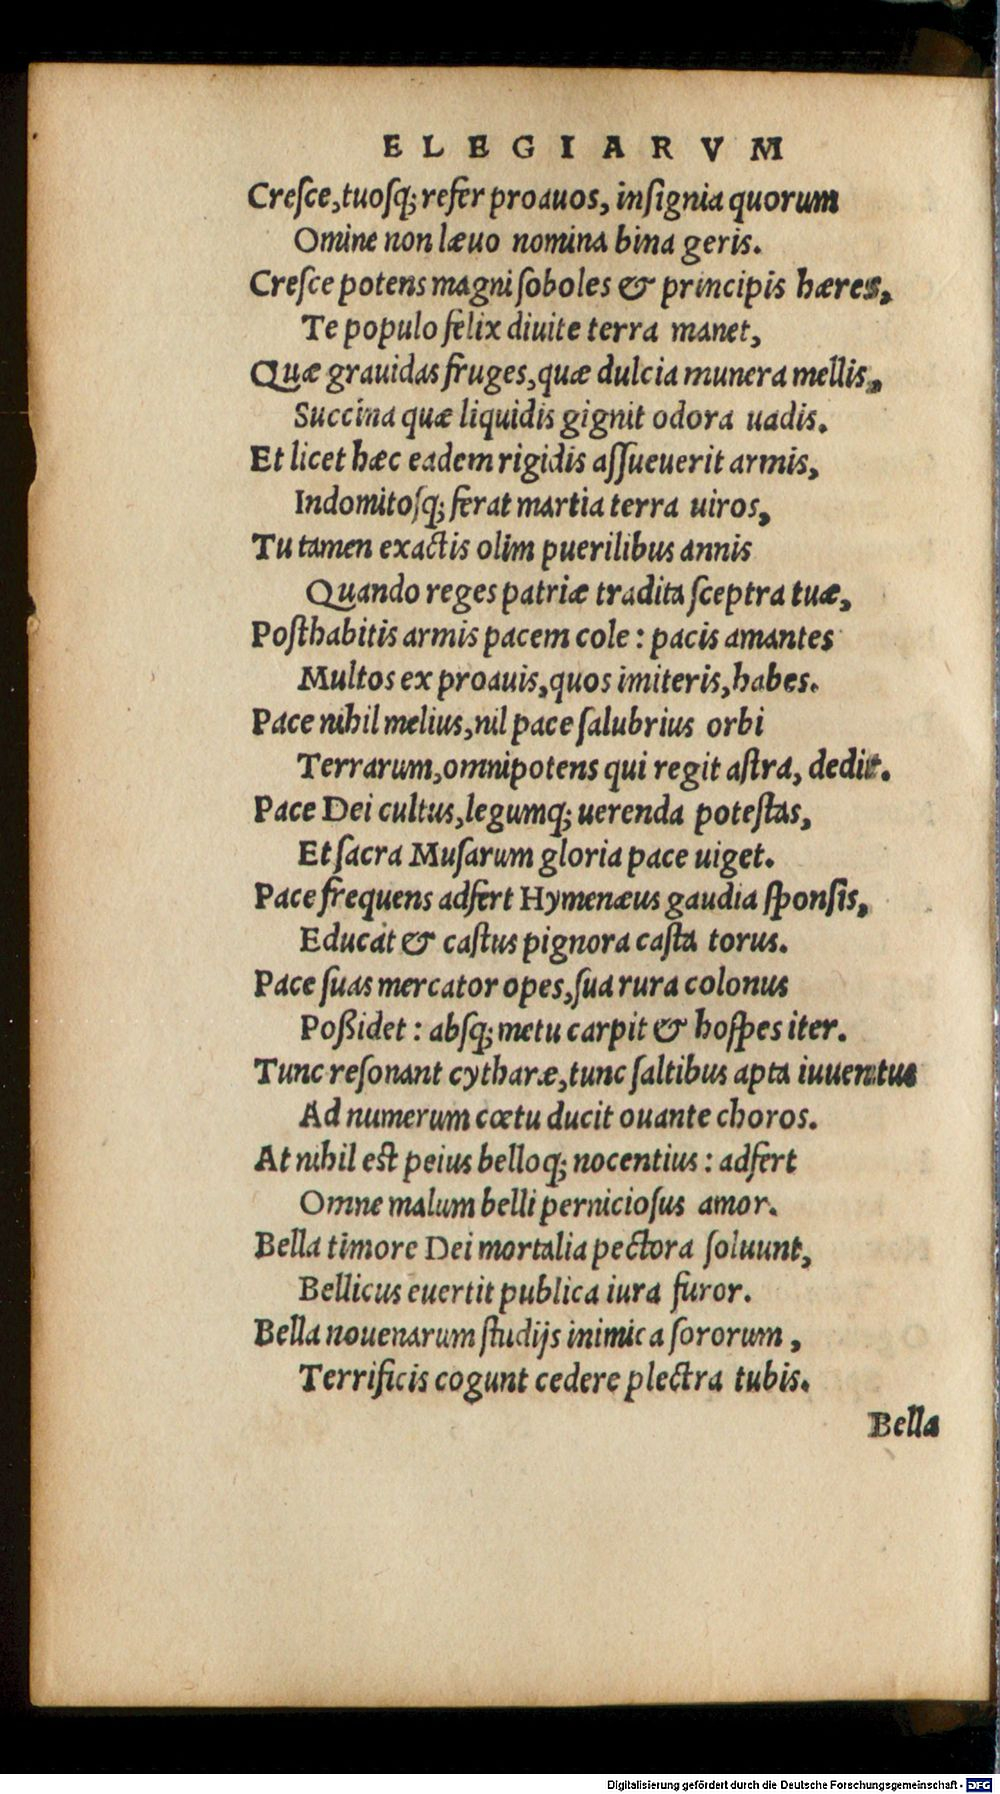 ELEGIARVM
Creſce, tuoſq; refer proauos, inſignia quorum
Omine non læuo nomina bina geris.
Creſce potens magni ſoboles & principis hæres,
Te populo felix diuite terra manet,
Quæ grauidas fruges, quæ dulcia munera mellis,
Succina quæ liquidis gignit odora uadis.
Et licet hæc eadem rigidis aſſueuerit armis,
Indomitoſq; ferat martia terra uiros,
Tu tamen exactis olim puerilibus annis
Quando reges patriæ tradita ſceptra tuæ,
Poſthabitis armis pacem cole : pacis amantes
Multos ex proauis, quos imiteris, habes.
Pace nihil melius, nil pace ſalubrius orbi
Terrarum, omnipotens qui regit aſtra, dedit.
Pace Dei cultus, legumq; uerenda poteſtas,
Et ſacra Muſarum gloria pace uiget.
Pace frequens adfert Hymenæus gaudia ſponſis,
Educat & caſtus pignora caſta torus.
Pace ſuas mercator opes, ſua rura colonus
Poßidet : abſq; metu carpit & hoſpes iter.
Tunc reſonant cytharæ, tunc ſaltibus apta iuuentus
Ad numerum cœtu ducit ouante choros.
At nihil eſt peius belloq; nocentius : adfert
Omne malum belli pernicioſus amor.
Bella timore Dei mortalia pectora ſoluunt,
Bellicus euertit publica iura furor.
Bella nouenarum ſtudijs inimica ſororum,
Terrificis cogunt cedere plectra tubis.
Bella
Digitalisierung gefördert durch die Deutsche Forschungsgemeinschaft - DFG